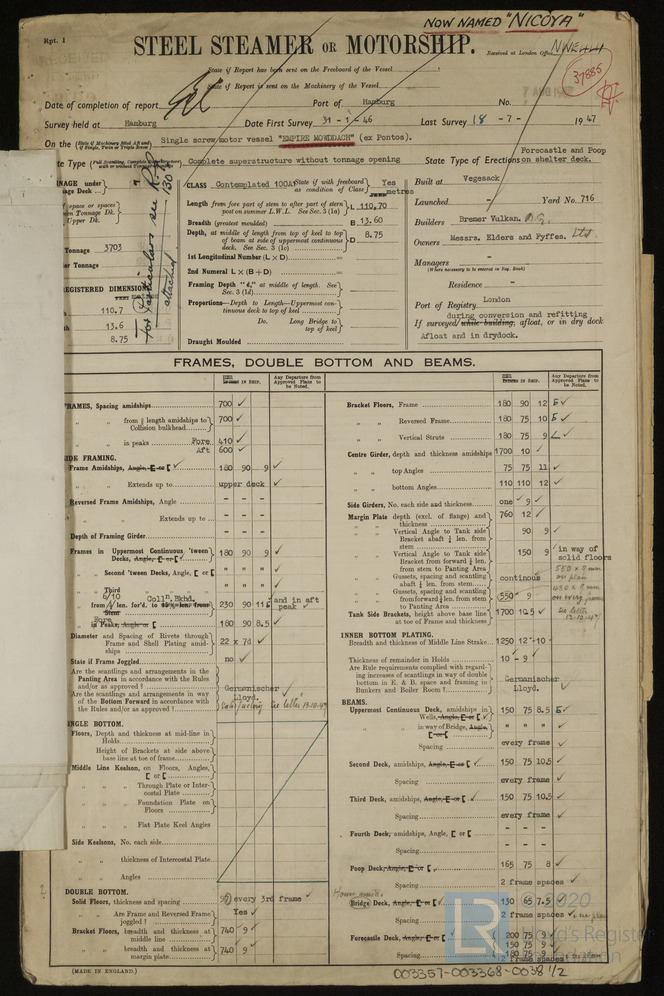 NOW NAMED "NICOYA"
Rpt. 1
STEEL STEAMER OR MOTORSHIP.
Received at London Office
State if Report has been sent on the Freeboard of the Vessel
State if Report is sent on the Machinery of the Vessel
37885
Date of completion of report
Port of Hamburg
No.
Survey held at Hamburg
Date First Survey 31 - 1 - 46
Last Survey 18 - 7 - 1947
On the Single screw motor vessel "EMPIRE MOWDDACH" (ex Pontos).
State Type Complete superstructure without tonnage opening
State Type of Erections Forecastle and Poop on shelter deck.
TONNAGE under
Tonnage Dk.
Upper Dk.
Tonnage 3703
REGISTERED DIMENSIONS
110.7
13.6
8.75
for particulars see R.
attached
CLASS Contemplated 100A1 State if with freeboard as condition of Class Yes
metres
Length from fore part of stem to after part of stern post on summer L.W.L. See Sec. 3 (1a) L 110,70
Breadth (greatest moulded) B 13.60
Depth, at middle of length from top of keel to top of beam at side of uppermost continuous deck. See Sec. 3 (1c) D 8.75
1st Longitudinal Number (L × D)
2nd Numeral L × (B+D)
Framing Depth "d," at middle of length. See Sec. 3 (1d)
Proportions—Depth to Length—Uppermost continuous deck to top of keel
Do. Long Bridge to top of keel
Draught Moulded
Built at Vegesack
Launched - Yard No. 716
Builders Bremer Vulkan. A.G.
Owners Messrs. Elders and Fyffes. Ltd
Managers -
(Where necessary to be entered in Reg. Book)
Residence -
Port of Registry London
during conversion and refitting
If surveyed while building, afloat, or in dry dock
Afloat and in drydock.
FRAMES, DOUBLE BOTTOM AND BEAMS.
Any Departure from Approved Plans to be Noted.
FRAMES, Spacing amidships 700 ✓
" " from ⅗ length amidships to Collision bulkhead 700 ✓
" " in peaks Fore 410 ✓
Aft 600 ✓
SIDE FRAMING.
Frame Amidships, Angle, E or [ 180 90 9 ✓
" " Extends up to upper deck ✓
Reversed Frame Amidships, Angle - - -
" " Extends up to - - -
Depth of Framing Girder - - -
Frames in Uppermost Continuous 'tween Decks, Angle, E or [ 180 90 9 ✓
" " Second 'tween Decks, Angle, [ or [ " " "
" " Third " " "
from 6/10 len. for'd. to Coll. Bkhd. 230 90 11.5 and in aft peak ✓
" " Fore in Peaks, Angle or [ 180 90 8.5 ✓
Diameter and Spacing of Rivets through Frame and Shell Plating amidships 22 x 7d ✓
State if Frame Joggled no ✓
Are the scantlings and arrangements in the Panting Area in accordance with the Rules and/or as approved ? Germanischer Lloyd. ✓
Are the scantlings and arrangements in way of the Bottom Forward in accordance with the Rules and/or as approved ? see letter 13-10-47
SINGLE BOTTOM.
Floors, Depth and thickness at mid-line in Holds
Height of Brackets at side above base line at toe of frame
Middle Line Keelson, on Floors, Angles, [ or [
" " Through Plate or Intercostal Plate
" " Foundation Plate on Floors
" " Flat Plate Keel Angles
Side Keelsons, No. each side
" " thickness of Intercostal Plate
" " Angles
DOUBLE BOTTOM.
Solid Floors, thickness and spacing every 3rd frame ✓
" " Are Frame and Reversed Frame joggled ? Yes ✓
Bracket Floors, breadth and thickness at middle line 740 9 ✓
" " breadth and thickness at margin plate 740 9 ✓
(MADE IN ENGLAND.)
Any Departure from Approved Plans to be Noted.
Bracket Floors, Frame 180 90 12 ✓
" " Reversed Frame 180 75 10 ✓
" " Vertical Struts 180 75 9 ✓
Centre Girder, depth and thickness amidships 1700 10 ✓
" " top Angles 75 75 11 ✓
" " bottom Angles 110 110 12 ✓
Side Girders, No. each side and thickness one ✓ 9 ✓
Margin Plate depth (excl. of flange) and thickness 760 12 ✓
" " Vertical Angle to Tank side Bracket abaft ¼ len. from stem 90 9 ✓
" " Vertical Angle to Tank side Bracket from forward ¼ len. from stem to Panting Area 150 9 ✓ in way of solid floors
" " Gussets, spacing and scantling abaft ¼ len. from stem continous
" " Gussets, spacing and scantling from forward ¼ len. from stem to Panting Area 550 9
550 x 9 mm on plan
450 x 9 mm on every frame
see letter 13-10-47
Tank Side Brackets, height above base line at toe of Frame and thickness 1700 10.5 ✓
INNER BOTTOM PLATING.
Breadth and thickness of Middle Line Strake 1250 12 - 10 ✓
Thickness of remainder in Holds 10 - 9 ✓
Are Rule requirements complied with regarding increases of scantlings in way of double bottom in E. & B. space and framing in Bunkers and Boiler Room ? Germanischer Lloyd. ✓
BEAMS.
Uppermost Continuous Deck, amidships in Wells, Angle, E or [ 150 75 8.5 ✓
" " in way of Bridge, Angle, [ or [ " " "
Spacing every frame ✓
Second Deck, amidships, Angle, E or [ 150 75 10.5 ✓
Spacing every frame ✓
Third Deck, amidships, Angle, E or [ 150 75 10.5 ✓
Spacing every frame ✓
Fourth Deck, amidships, Angle, [ or [ - - -
Spacing - - -
Poop Deck, Angle, E or [ 165 75 8 ✓
Spacing 2 frame spaces ✓
Bridge Deck, Angle, E or [ 130 65 7.5 ✓
Spacing 2 frame spaces ✓
Forecastle Deck, Angle, E or [ 200 75 9 ✓
150 75 9 ✓
180 75 9 ✓
Spacing 2 frame spaces
003357-003368-0038 1/2
LR © 2020
Lloyd's Register